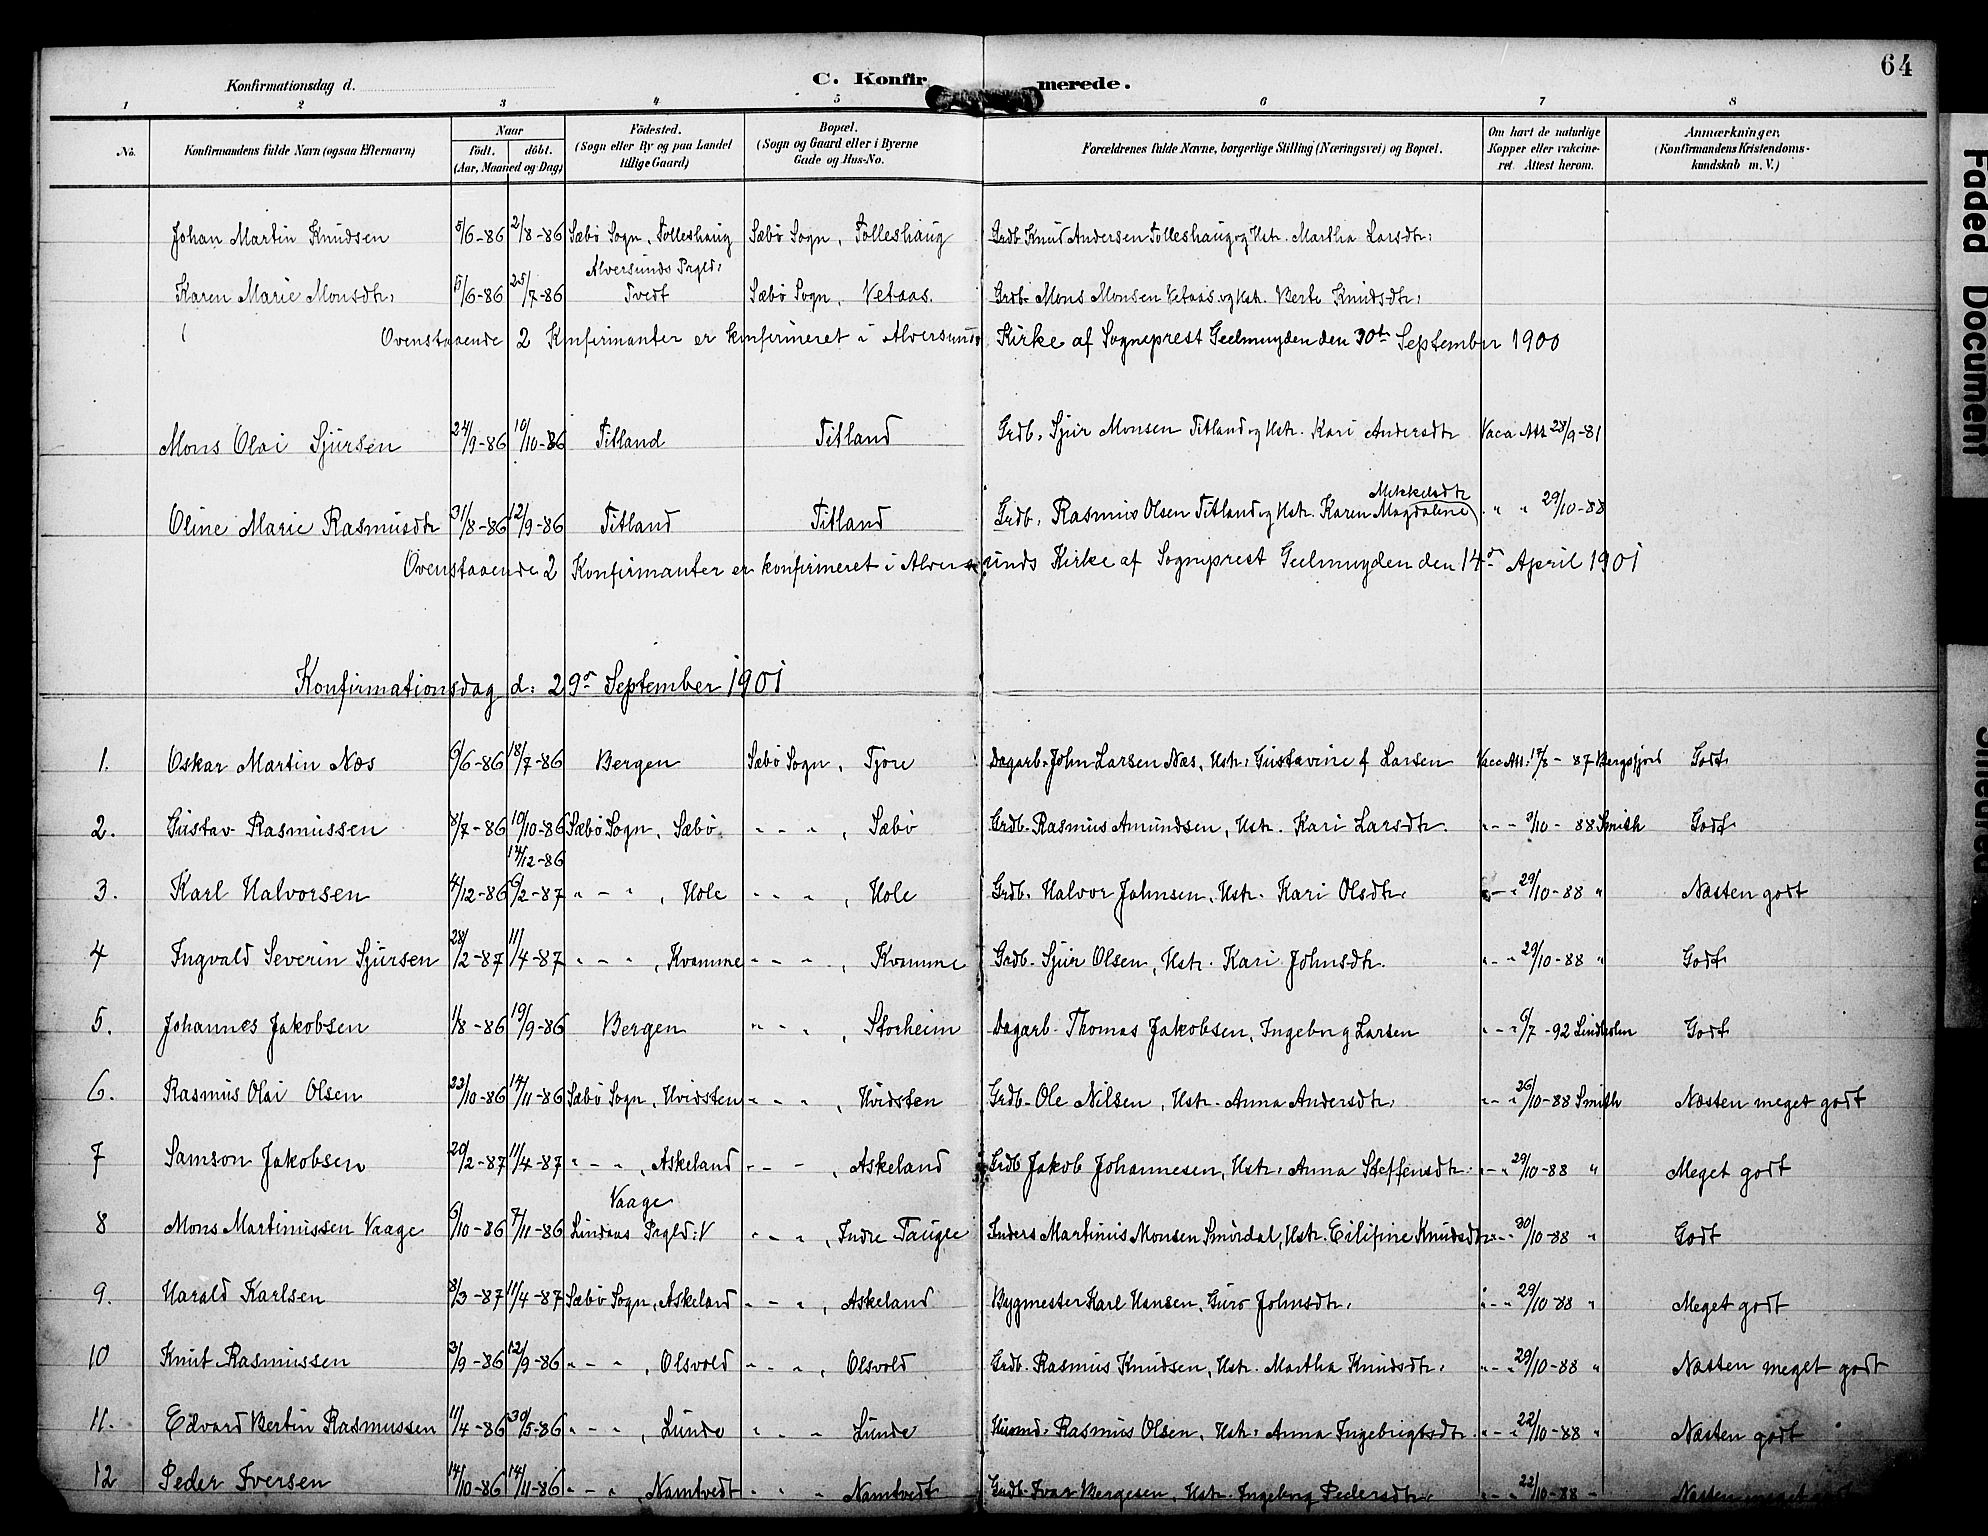 64
C. Konfirmerede.
Konfirmationsdag d.
1 2 3 4 5 6 7 8
No. Konfirmandens fulde Navn (ogsaa Efternavn) Naar födt. döbt. (Aar, Maaned og Dag) Födested. (Sogn eller By og paa Landet tillige Gaard) Bopæl. (Sogn og Gaard eller i Byerne Gade og Hus-No. Forældrenes fulde Navne, borgerlige Stilling (Næringsvei) og Bopæl. Om havt de naturlige Kopper eller vakcineret. Attest herom. Anmærkninger. (Konfirmandens Kristendomskundskab m. V.)
Johan Martin Knudsen 5/6-86 2/8-86 Sæbö Sogn, Tolleshaug Sæbö Sogn, Tolleshaug Grdb. Knud Andersen Tolleshaug og Hstr. Martha Larsdtr.
Karen Marie Monsdtr. 5/6-86 25/7-86 Alversunds Prgld. Tvedt Sæbö Sogn, Vetaas. Grdb. Mons Monsen Vetaas og Hstr. Berte Knudsdtr.
Ovenstaaende 2 Konfirmanter er konfirmeret i Alversunds Kirke af Sogneprest Geelmuyden den 30te September 1900
Mons Olai Sjursen 24/9-86 10/10-86 Titland Titland Grdb. Sjur Monsen Titland og Hstr. Kari Andersdtr Vacc Att 28/9-81
Oline Marie Rasmusdtr 31/8-86 12/9-86 Titland Titland Grdb. Rasmus Olsen Titland og Hstr. Karen Magdalene Mikkelsdtr " " 29/10-88
Ovenstaaende 2 Konfirmanter er konfirmeret i Alversunds Kirke af Sogneprest Geelmuyden den 14de April 1901
Konfirmationsdag d: 29de September 1901
1. Oskar Martin Næs 6/6-86 18/7-86 Bergen Sæbö Sogn, Fjore Dagarb. John Larsen Næs, Hstr. Gustavine f Larsen Vacc Att. 17/8-87 Bergsfjord Godt
2. Gustav Rasmussen 8/7-86 10/10-86 Sæbö Sogn, Sæbö " - ", Sæbö Grdb. Rasmus Amundsen, Hstr. Kari Larsdtr. " - 3/10-88 Smith Godt
3. Karl Halvorsen 4/12-86 12/12-86 6/2-87 " - ", Hole " - ", Hole Grdb. Halvor Johnsen, Hstr. Kari Olsdtr. " - " 29/10-88 " Næsten godt
4 Ingvald Severin Sjursen 28/2-87 11/4-87 " - ", Kvamme " - ", Kvamme Grdb. Sjur Olsen, Hstr. Kari Johnsdtr. " - " 29/10-88 " Godt
5. Johannes Jakobsen 1/8-86 19/9-86 Bergen " - ", Storheim Dagarb. Thomas Jakobsen, Ingeborg Larsen " - " 6/7-92 Lindholm Godt
6. Rasmus Olai Olsen 22/10-86 14/11-86 Sæbö Sogn, Hvidsten " - ", Hvidsten Grdb. Ole Nilsen, Hstr. Anna Andersdtr. " - " 26/10-88 Smith Næsten meget godt
7 Samson Jakobsen 20/2-87 11/4-87 " - ", Askeland " - ", Askeland Grdb Jakob Johannesen, Hstr. Anna Steffensdtr. " - " 29/10-88 " Meget godt
8 Mons Martinussen Vaage 6/10-86 7/11-86 Lindaas Prgld: Vaage " - ", Indre Taugle Inders Martinus Monsen Smördal, Hstr. Eilifine Knudsdtr " - 30/10-88 " Godt
9. Harald Karlsen 8/3-87 11/4-87 Sæbö Sogn, Askeland " - ", Askeland Bygmester Karl Hansen, Guro Johnsdtr. " - " 29/10-88 " Meget godt
10 Knut Rasmussen 3/9-86 12/9-86 " - ", Olsvold " - ", Olsvold Grdb. Rasmus Knudsen, Hstr. Martha Knudsdtr. " - " 29/10-88 " Næsten meget godt
11. Edvard Bertin Rasmussen 11/4-86 30/5-86 " - ", Lunde " - " Lunde Husmd. Rasmus Olsen, Hstr. Anna Ingebrigtsdtr. " - " 22/10-88 " Næsten godt
12 Peder Iversen 14/10-86 14/11-86 " - ", Namtvedt " - " Namtvedt Grdb. Ivar Bergesen, Hstr. Ingeborg Pedersdtr. " - " 22/10-88 " Næsten meget godt
Faded Document